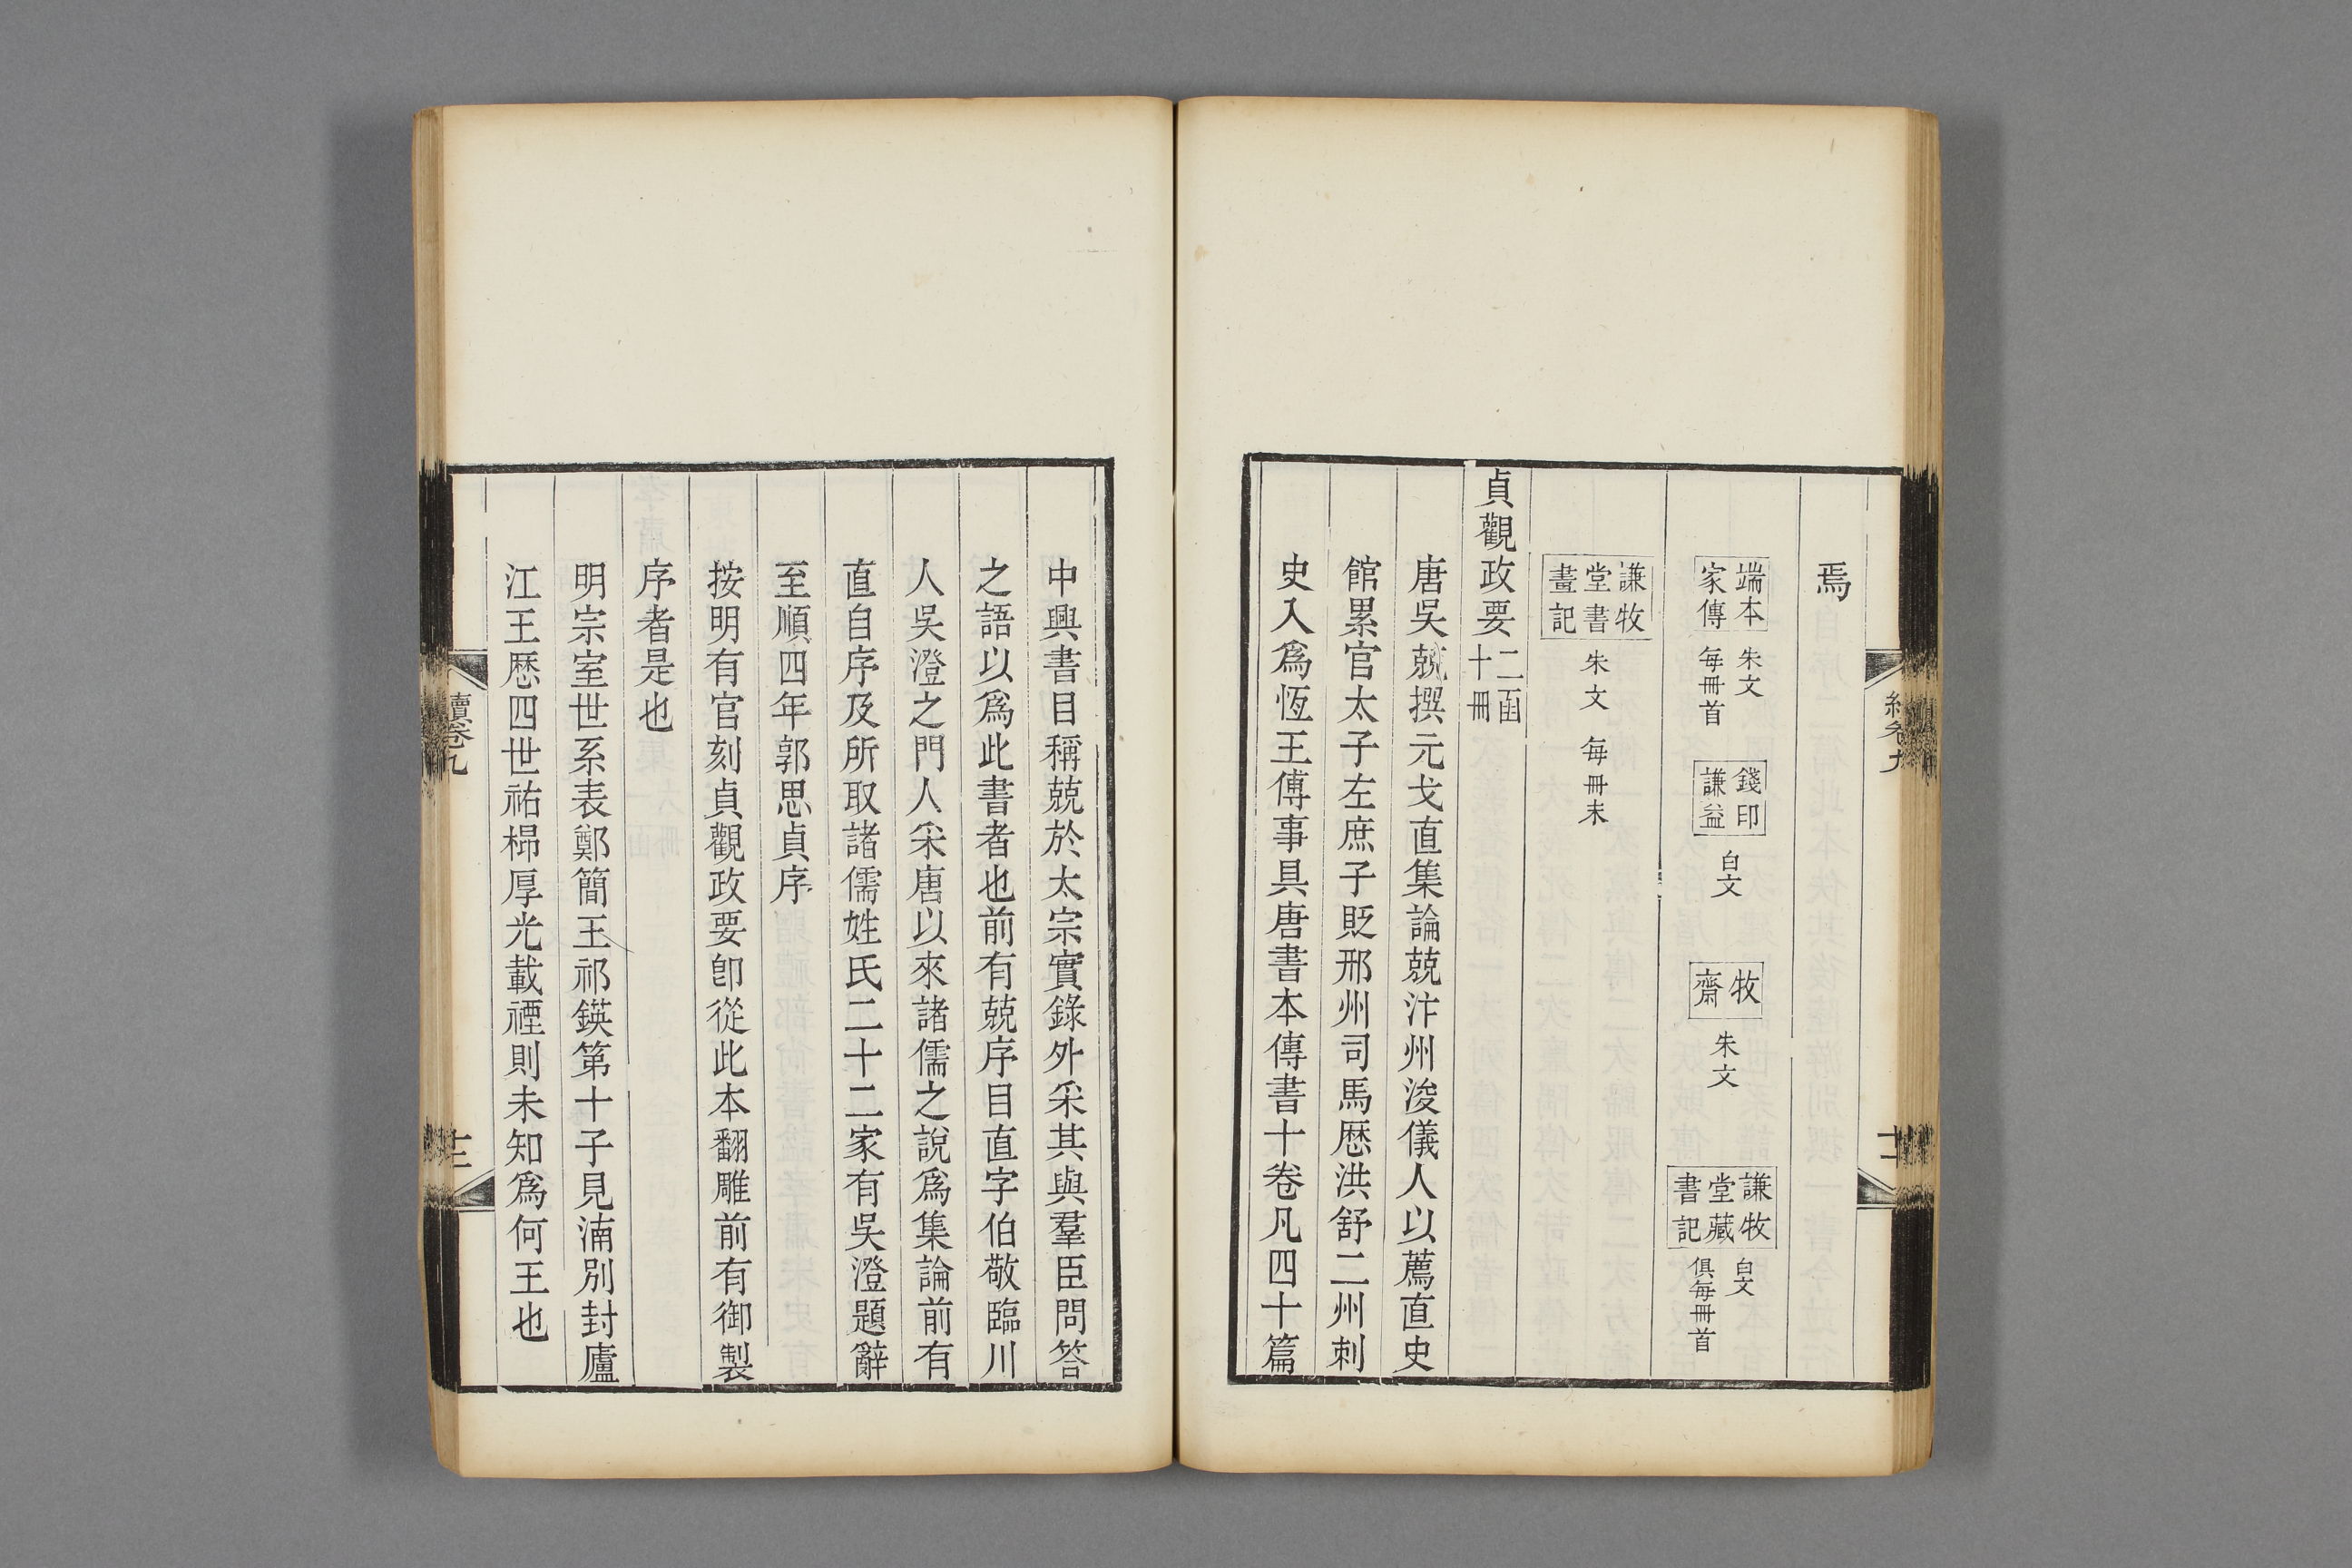 焉
端本家傳 朱文每冊首 錢印謙益 白文 牧齋 朱文 謙牧堂藏書記 白文俱每冊首
謙牧堂書畫記 朱文每冊末
貞觀政要 二函十冊
唐吳兢撰元戈直集論兢汴州浚儀人以薦直史
館累官太子左庶子貶邢州司馬歷洪舒二州刺
史入爲恆王傅事具唐書本傳書十卷凡四十篇
中興書目稱兢於太宗實錄外采其與羣臣問答
之語以爲此書者也前有兢序目直字伯敬臨川
人吳澄之門人采唐以來諸儒之說爲集論前有
直自序及所取諸儒姓氏二十二家有吳澄題辭
至順四年郭思貞序
按明有官刻貞觀政要卽從此本翻雕前有御製
序者是也
明宗室世系表鄭簡王祁鍈第十子見湳別封廬
江王歷四世祐㮩厚光載禋則未知爲何王也
續卷九